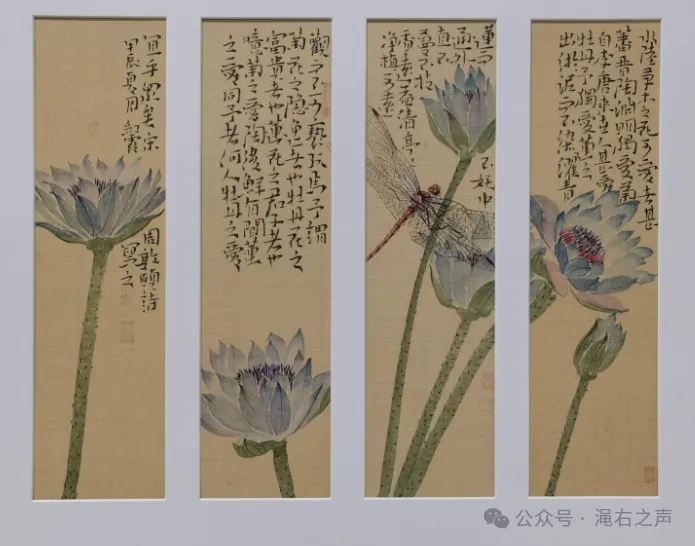 水陸草木之花可愛者甚
蕃晉陶淵明獨愛菊
自李唐來世人甚愛
牡丹予獨愛蓮之
出淤泥而不染濯清
漣而不妖中
通外
直不
蔓不枝
香遠益清亭亭
淨植可遠
觀而不可褻玩焉予謂
菊花之隱逸者也牡丹花之
富貴者也蓮花之君子者也
噫菊之愛陶後鮮有聞蓮
之愛同予者何人牡丹之愛
宜乎眾矣宋
周敦頤詩
甲辰夏月
寫之
公众号 · 渑右之声